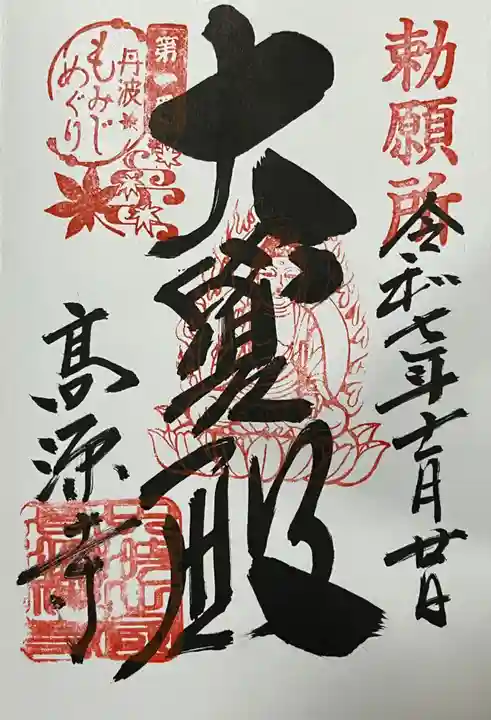 勅願所
令和七年十一月廿日
大寶殿
第
丹波
もみじ
めぐり
高源寺